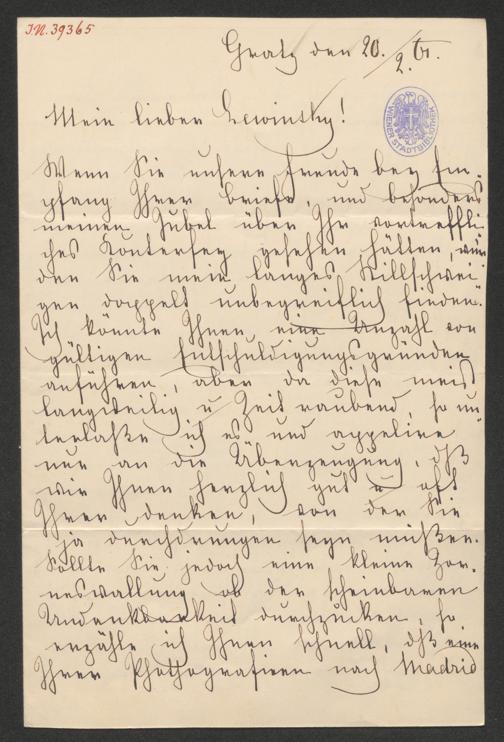 I.N. 39365
Gratz den 20./2. 61.
WIENER STADTBIBLIOTHEK
Mein lieber Lewinsky!
Wenn Sie unsere Freude bey Em-
pfang Ihrer Briefe, und besonders
meinen Jubel über Ihr vortreffli-
ches Konterfey gesehen hätten, wür-
den Sie mein langes Stillschwei-
gen doppelt unbegreiflich finden.
Ich könnte Ihnen eine Unzahl von
gültigen Entschuldigungsgründen
anführen, aber da diese meist
langweilig u Zeit raubend, so un-
terlaße ich es und appelire
nur an die Überzeugung, dß
wir Ihnen herzlich gut u oft
Ihrer denken, von der Sie
ja durchdrungen seyn müßen.
Sollte Sie jedoch eine kleine Zor-
neswallung ob der scheinbaren
Undankbarkeit durchzucken, so
erzähle ich Ihnen schnell, dß eine
Ihrer Photografieen nach Madrid